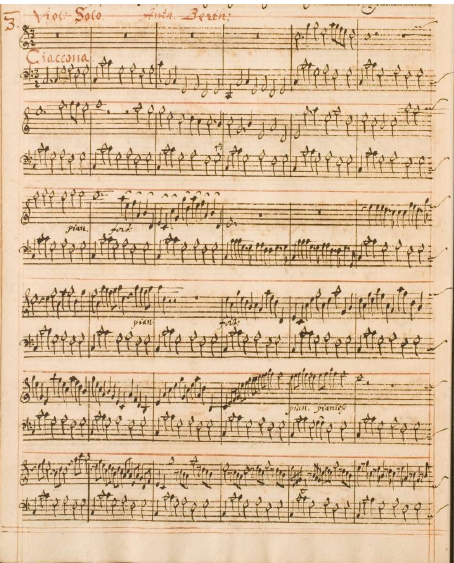 3 Viol: Solo Anto. Bertn:
Ciaccona
3
2
3
2
pian. fort
pian fort
pian. pianiss